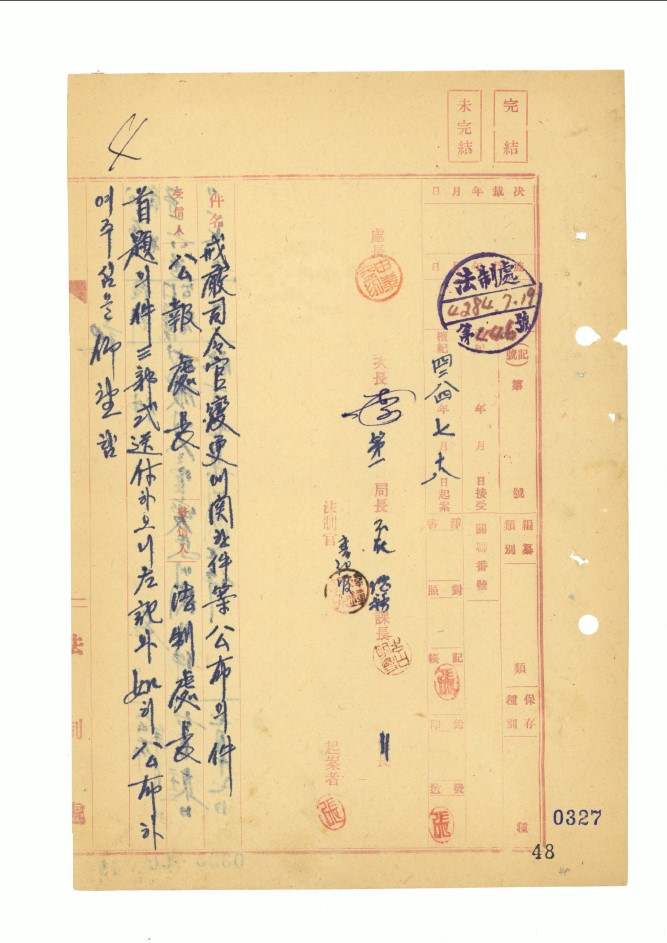 完結
未完結
決裁年月日
法制處
4284.7.19
第446號
記號
第 號
編纂類別
類
保存種別
種
年 月 日接受
關聯番號
檀紀四二八四年七月十八日起案
淨書
對照
記帳
鈐印
發送
處長
次長
第一局長
課長
法制官
起案者
件名 戒嚴司令官變更에関한件案公布의件
受信人 公報處長 發信人 法制處長
首題의件三部式送付하오니左記와如히公布하
여주심을仰望함
0327
48